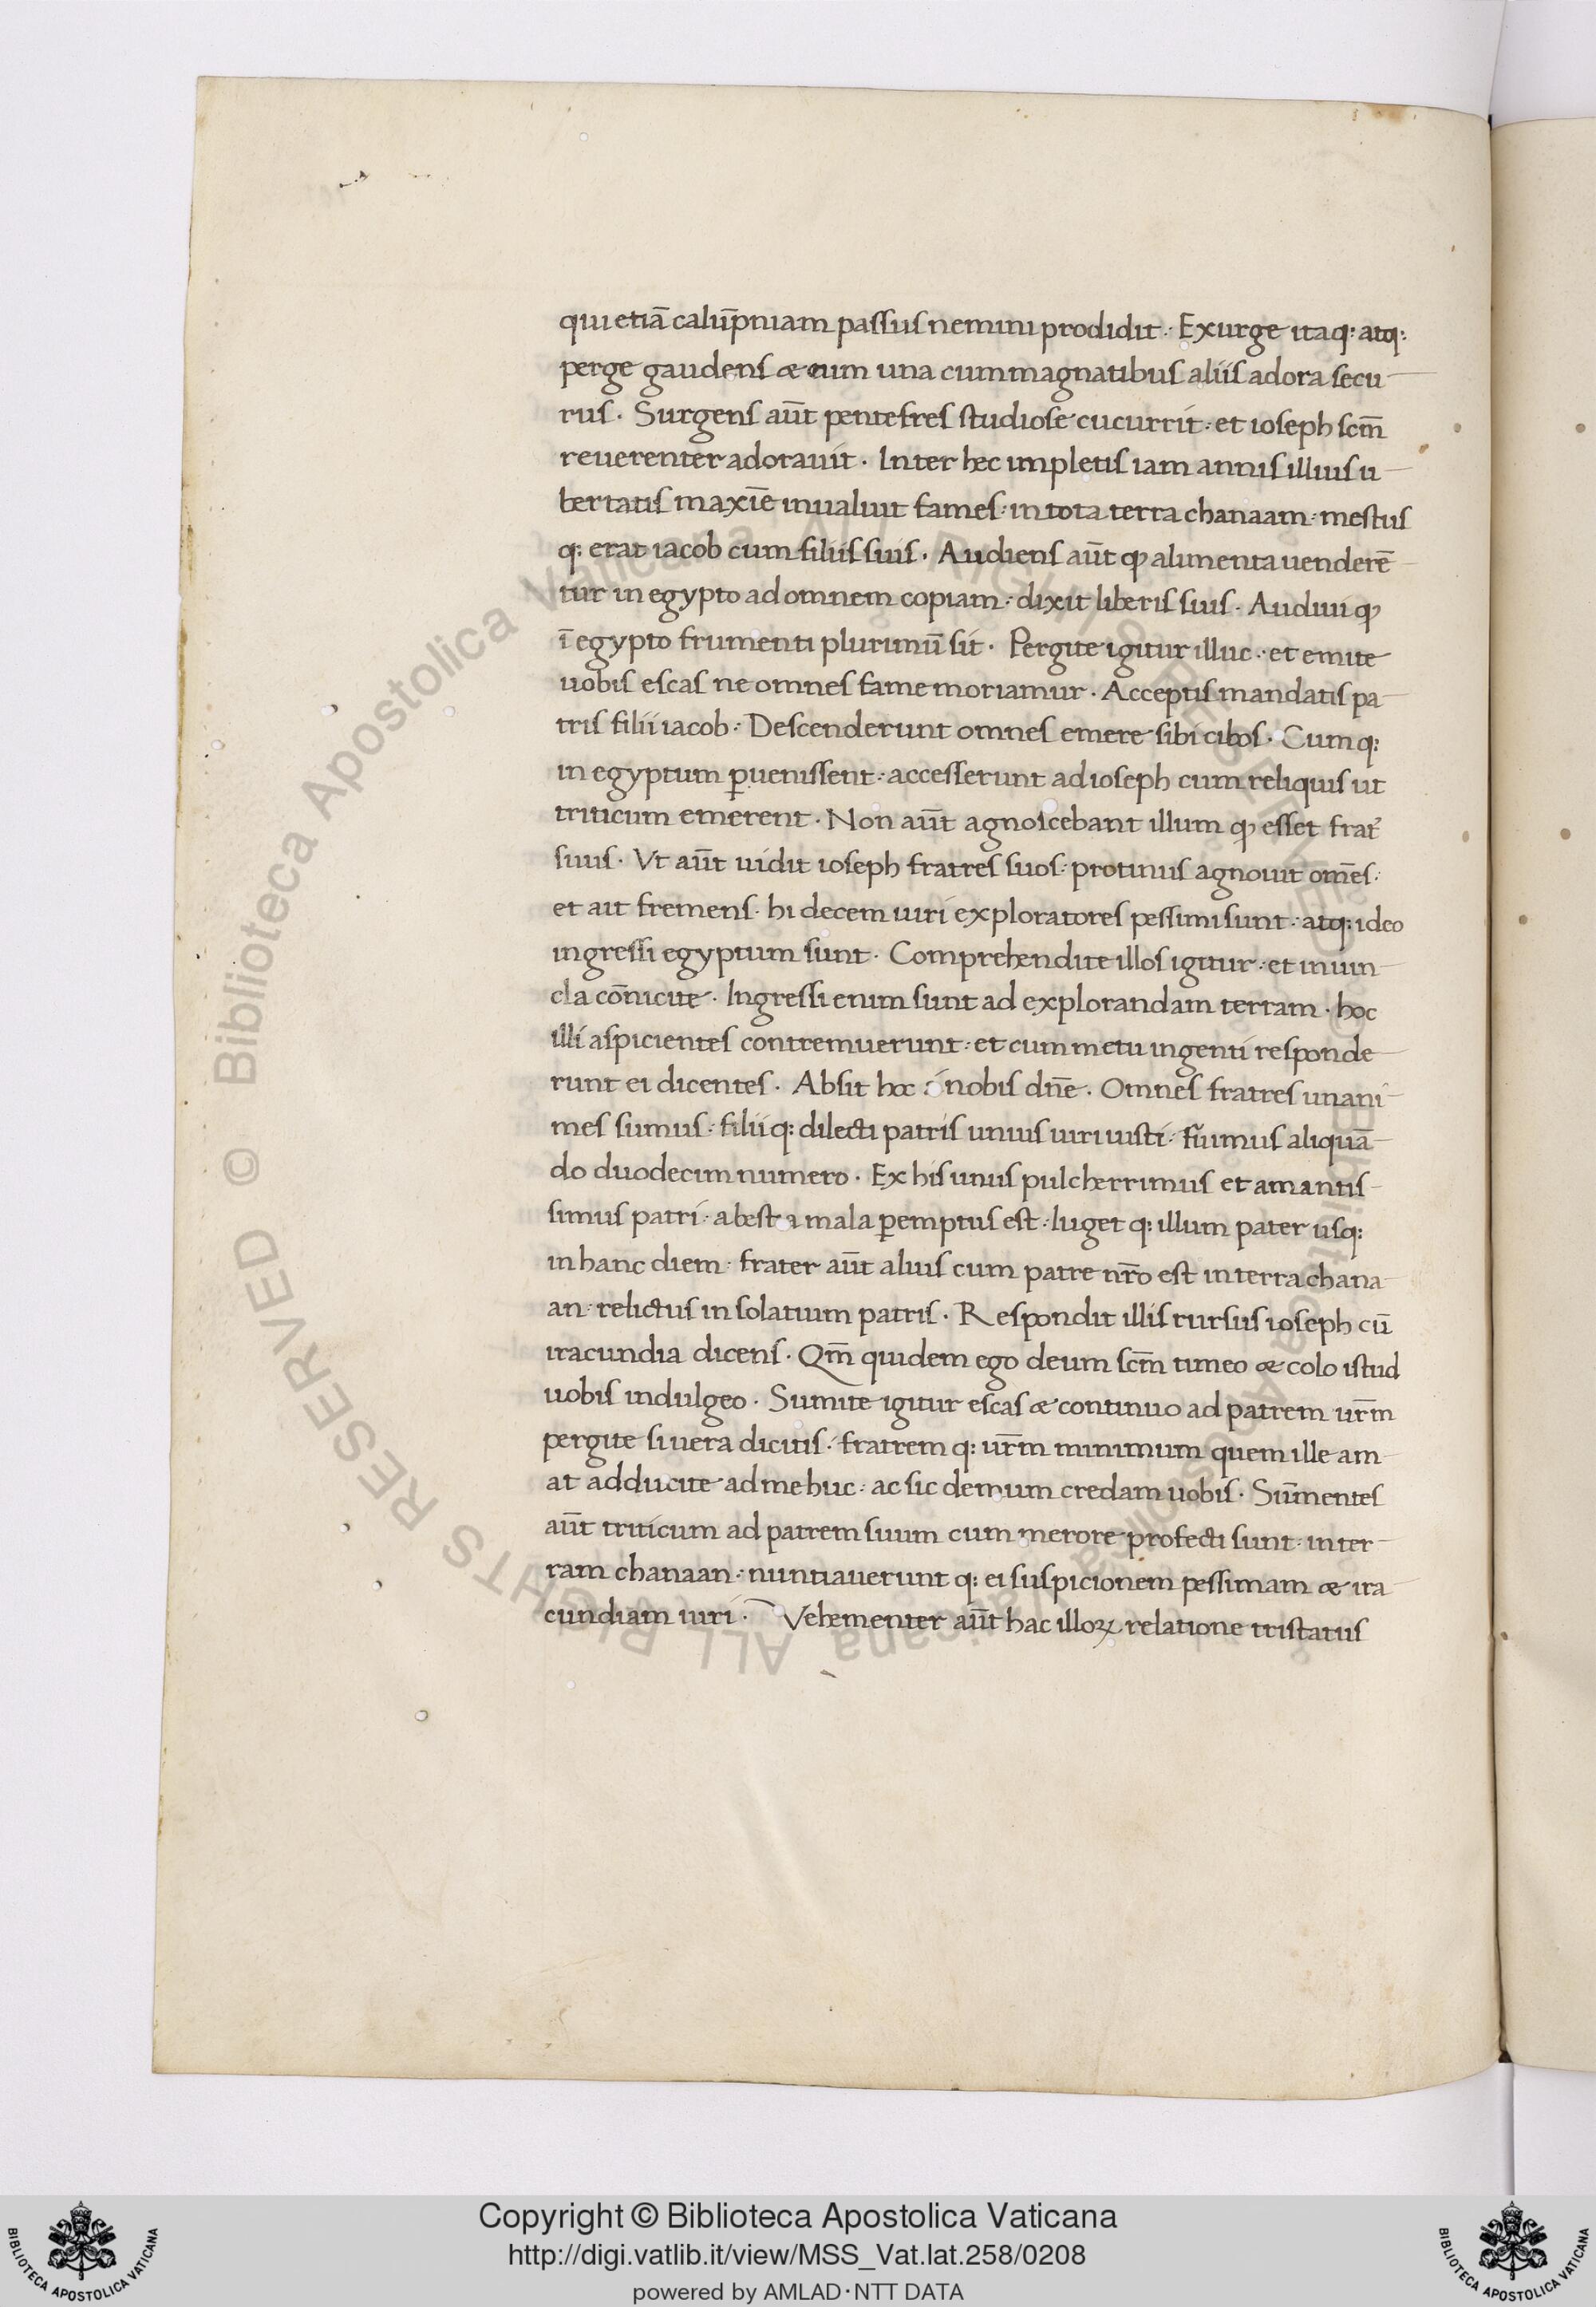 qui etiā calūpniam passus nemini prodidit. Exurge itaq: atq:
perge gaudens & eum una cum magnatibus aliis adora secu
rus. Surgens aūt pentefres studiose cucurrit: et ioseph scm̄
reuerenter adorauit. Inter hec impletis iam annis illius u
bertatis maxīe inualuit fames: in tota terra chanaam: mestus
q: erat iacob cum filiis suis. Audiens aūt qꝫ alimenta uenderē
tur in egypto ad omnem copiam: dixit liberis suis. Audiui qꝫ
ī egypto frumenti plurimū sit. Pergite igitur illuc: et emite
uobis escas ne omnes fame moriamur. Acceptis mandatis pa
tris filii iacob: Descenderunt omnes emere sibi cibos. Cumq:
in egyptum ꝑuenissent: accesserunt ad ioseph cum reliquis ut
triticum emerent. Non aūt agnoscebant illum qꝫ esset frat̄
suus. Vt aūt uidit ioseph fratres suos: protinus agnouit om̄es:
et ait fremens. hi decem uiri exploratores pessimi sunt: atq: ideo
ingressi egyptum sunt. Comprehendite illos igitur: et inuin
cla cōnicite. Ingressi enim sunt ad explorandam terram. hoc
illi aspicientes contremuerunt: et cum metu ingenti responde
runt ei dicentes. Absit hoc i nobis dn̄e. Omnes fratres unani
mes sumus: filiiq: dilecti patris unius uiri iusti: fūimus aliquā
do duodecim numero. Ex his unus pulcherrimus et amantis
simus patri: a bestia mala ꝑemptus est: luget q: illum pater usq:
in hanc diem: frater aūt alius cum patre nr̄o est in terra chana
an: relictus in solatium patris. Respondit illis rursus ioseph cū
iracundia dicens. Qm̄ quidem ego deum scm̄ timeo & colo istud
uobis indulgeo. Sumite igitur escas & continuo ad patrem ur̄m
pergite si uera dicitis: fratrem q: ur̄m minimum quem ille am
at adducite ad me huc: ac sic demum credam uobis. Sūmentes
aūt triticum ad patrem suum cum merore profecti sunt: in ter
ram chanaan: nuntiauerunt q: ei suspicionem pessimam & ira
cundiam uiri. Vehementer aūt hac illoꝝ relatione tristatus
© Biblioteca Apostolica Vaticana ALL RIGHTS RESERVED
Copyright © Biblioteca Apostolica Vaticana
http://digi.vatlib.it/view/MSS_Vat.lat.258/0208
powered by AMLAD·NTT DATA
BIBLIOTECA APOSTOLICA VATICANA
BIBLIOTECA APOSTOLICA VATICANA